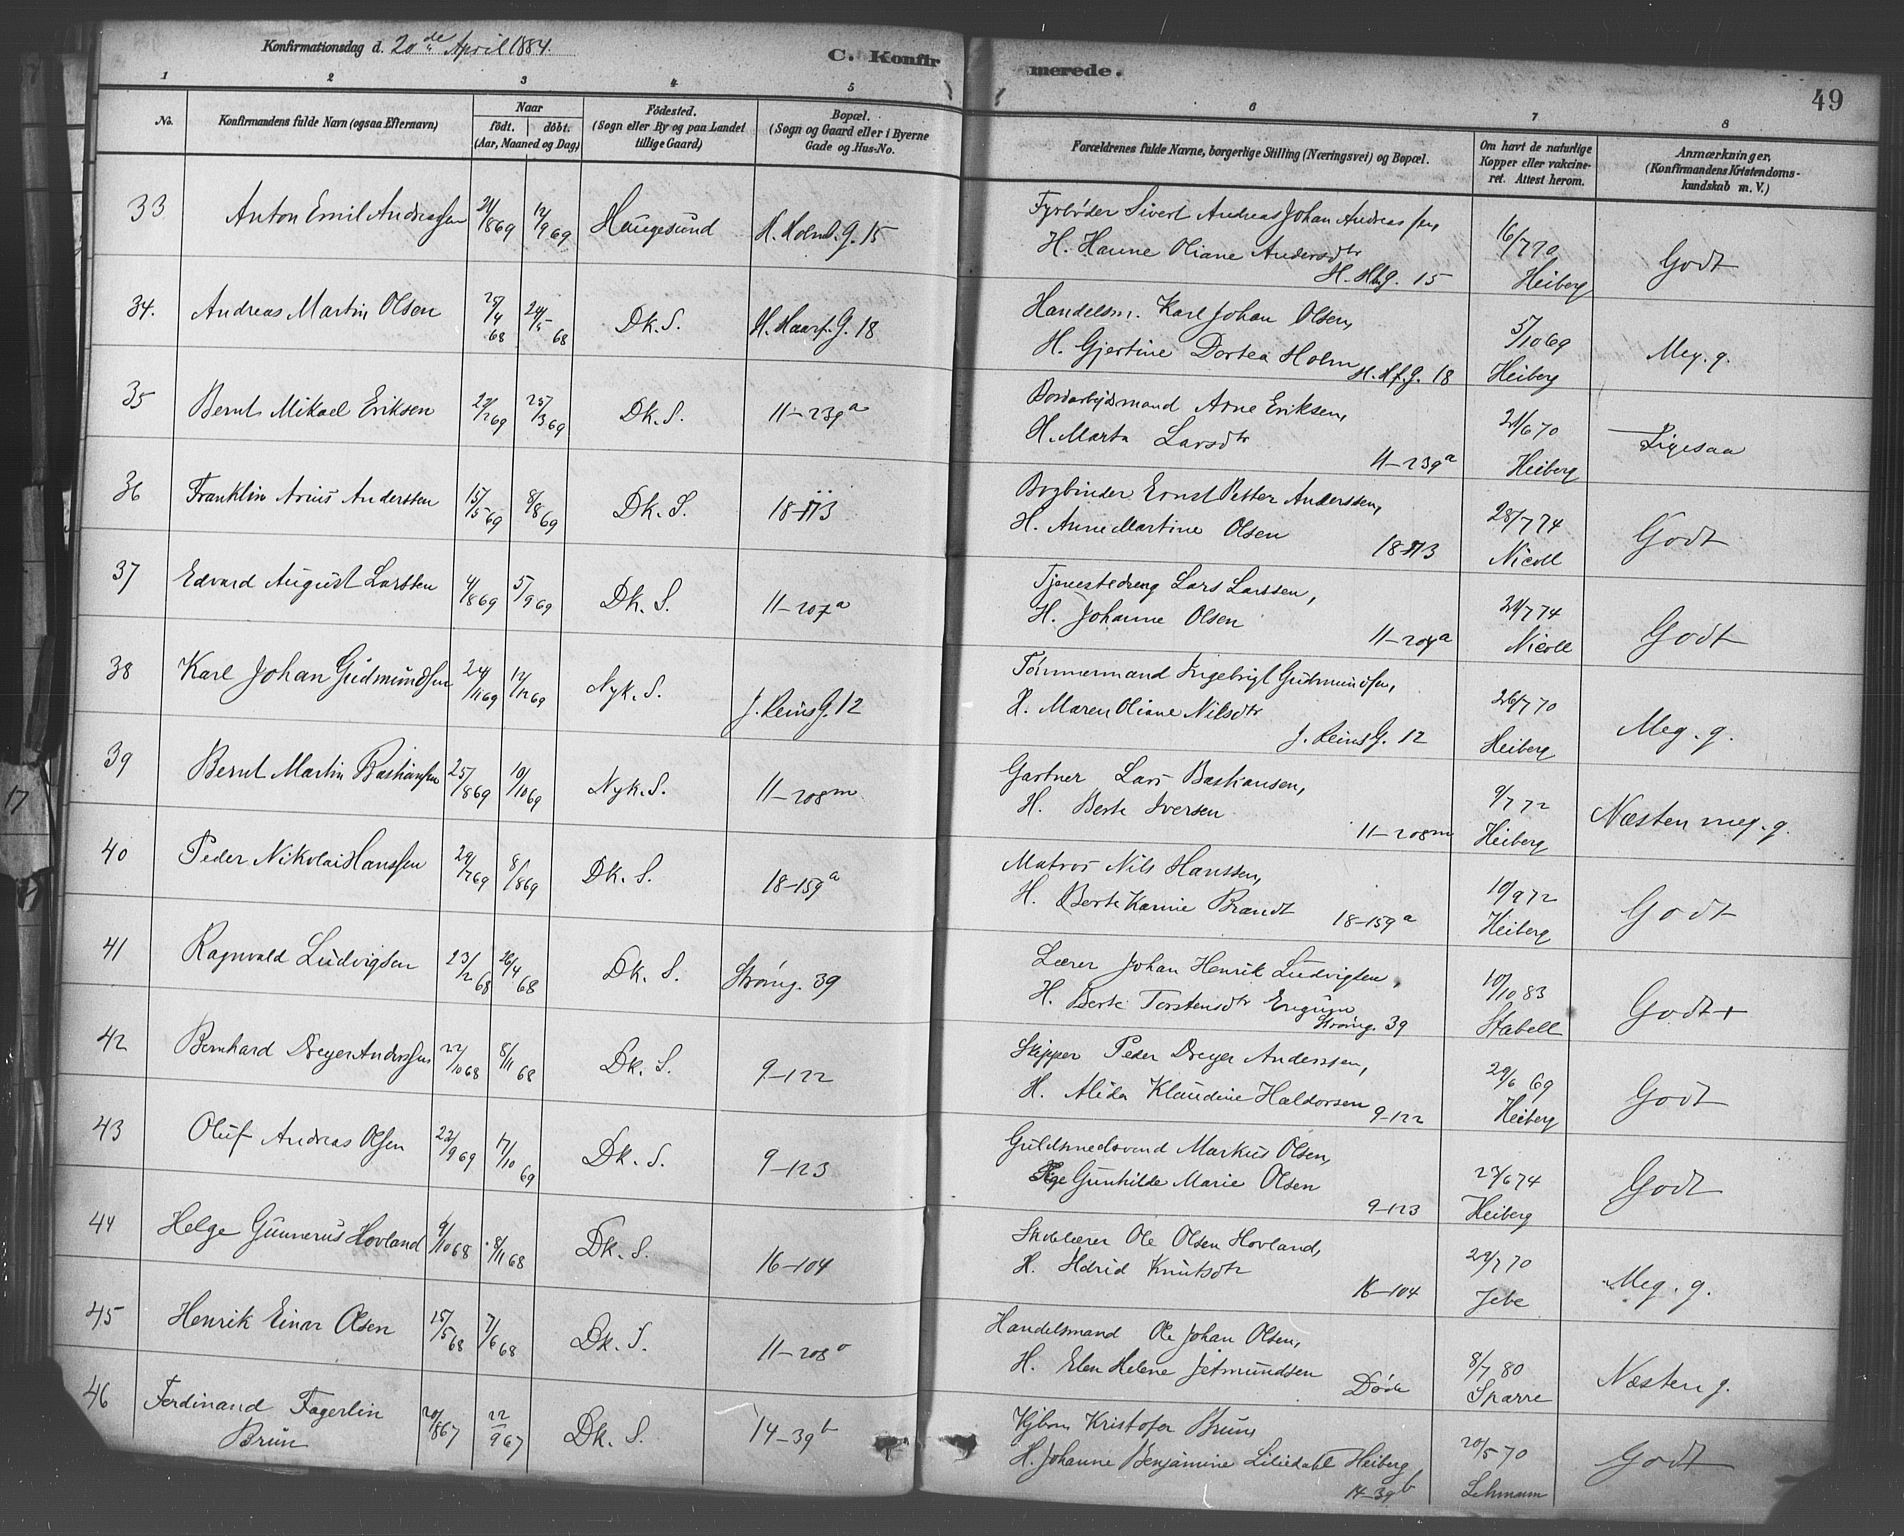 Konfirmationsdag d. 20de April 1884.
C. Konfirmerede.
49
1 2 3 4 5 6 7 8
No.
Konfirmandens fulde Navn (ogsaa Efternavn)
Naar
födt. | döbt.
(Aar, Maaned og Dag)
Födested.
(Sogn eller By og paa Landet
tillige Gaard)
Bopæl.
(Sogn og Gaard eller i Byerne
Gade og Hus-No.
Forældrenes fulde Navne, borgerlige Stilling (Næringsvei) og Bopæl.
Om havt de naturlige
Kopper eller vakcine-
ret. Attest herom.
Anmærkninger,
(Konfirmandens Kristendoms-
kundskab m. V.)
33 Anton Emil Andreassen 21/8 69 12/9 69 Haugesund H. Holmb. G. 15
Fyrbøder Sivert Andreas Johan Andreassen, 16/7 70
H. Hanne Oliane Andersdtr Heiberg Godt
H. Hbg. 15
34. Andreas Martin Olsen 25/4 68 24/5 68 Dk. S. H. Haarf. G. 18
Handelsm. Karl Johan Olsen, 5/10 69
H. Gjertine Dortea Holm H. Hf. G. 18 Heiberg Meg. g.
35 Bernt Mikael Eriksen 22/2 69 25/3 69 Dk. S. 11–239a
Bordarbejdsmand Arne Eriksen, 21/6 70
H. Marta Larsdtr 11–239a Heiberg Ligesaa
36 Franklin Arius Anderssen 15/5 69 8/8 69 Dk. S. 18-113
Bogbinder Ernst Petter Anderssen, 28/7 74
H. Anne Martine Olsen 18-113 Nicoll Godt
37 Edvard August Larssen 4/8 69 5/9 69 Dk. S. 11–207a
Tjenestedreng Lars Larssen, 21/7 74
H. Johanne Olsen 11–207a Nicoll Godt
38 Karl Johan Gudmundsen 24/11 69 12/12 69 Nyk. S. J. Reins G. 12
Tømmermand Ingebrigt Gudmundsen, 26/7 70
H. Maren Oliane Nilsdtr J. Reins G. 12 Heiberg Meg. g.
39 Bernt Martin Bastiansen 25/8 69 10/10 69 Nyk. S. 11–208m
Gartner Lars Bastiansen, 9/7 72
H. Berte Iversen 11–208m Heiberg Næsten meg. g.
40 Peder Nikolai Hanssen 29/7 69 8/8 69 Dk. S. 18–159a
Matros Nils Hanssen, 10/9 72
H. Berte Karine Brandt 18–159a Heiberg Godt
41 Ragnvald Ludvigsen 23/2 68 26/4 68 Dk. S. Strømg. 39
Lærer Johan Henrik Ludvigsen, 10/10 83
H. Berte Torstensdtr Strømg. 39 Stabell Godt+
42 Bernhard Dreyer Anderssen 22/10 68 8/11 68 Dk. S. 9–122
Skipper Peder Dreyer Anderssen, 29/6 69
H. Alida Klaudine Haldorsen 9–122 Heiberg Godt
43 Oluf Andreas Olsen 22/9 69 17/10 69 Dk. S. 9–123
Guldsmedsvend Markus Olsen, 23/6 74
Pige Gunhilde Marie Olsen 9–123 Heiberg Godt
44 Helge Gunnerus Hovland 9/10 68 8/11 68 Dk. S. 16–104
Skolelærer Ole Olsen Hovland, 29/7 70
H. Knutsdtr 16–104 Jebe Meg. g.
45 Henrik Einar Olsen 15/5 68 7/6 68 Dk. S. 11–208o
Handelsmand Ole Johan Olsen, 8/7 80
H. Elen Helene Jetmundsen Døde Sparre Næsten g.
46 Ferdinand Fagerlin
Brun 20/8 67 22/9 67 Dk. S. 14–39b
Kjbm. Kristofer Brun, 20/5 70
H. Johanne Benjamine Liliedahl Heiberg
14–39b Lehmann Godt
17